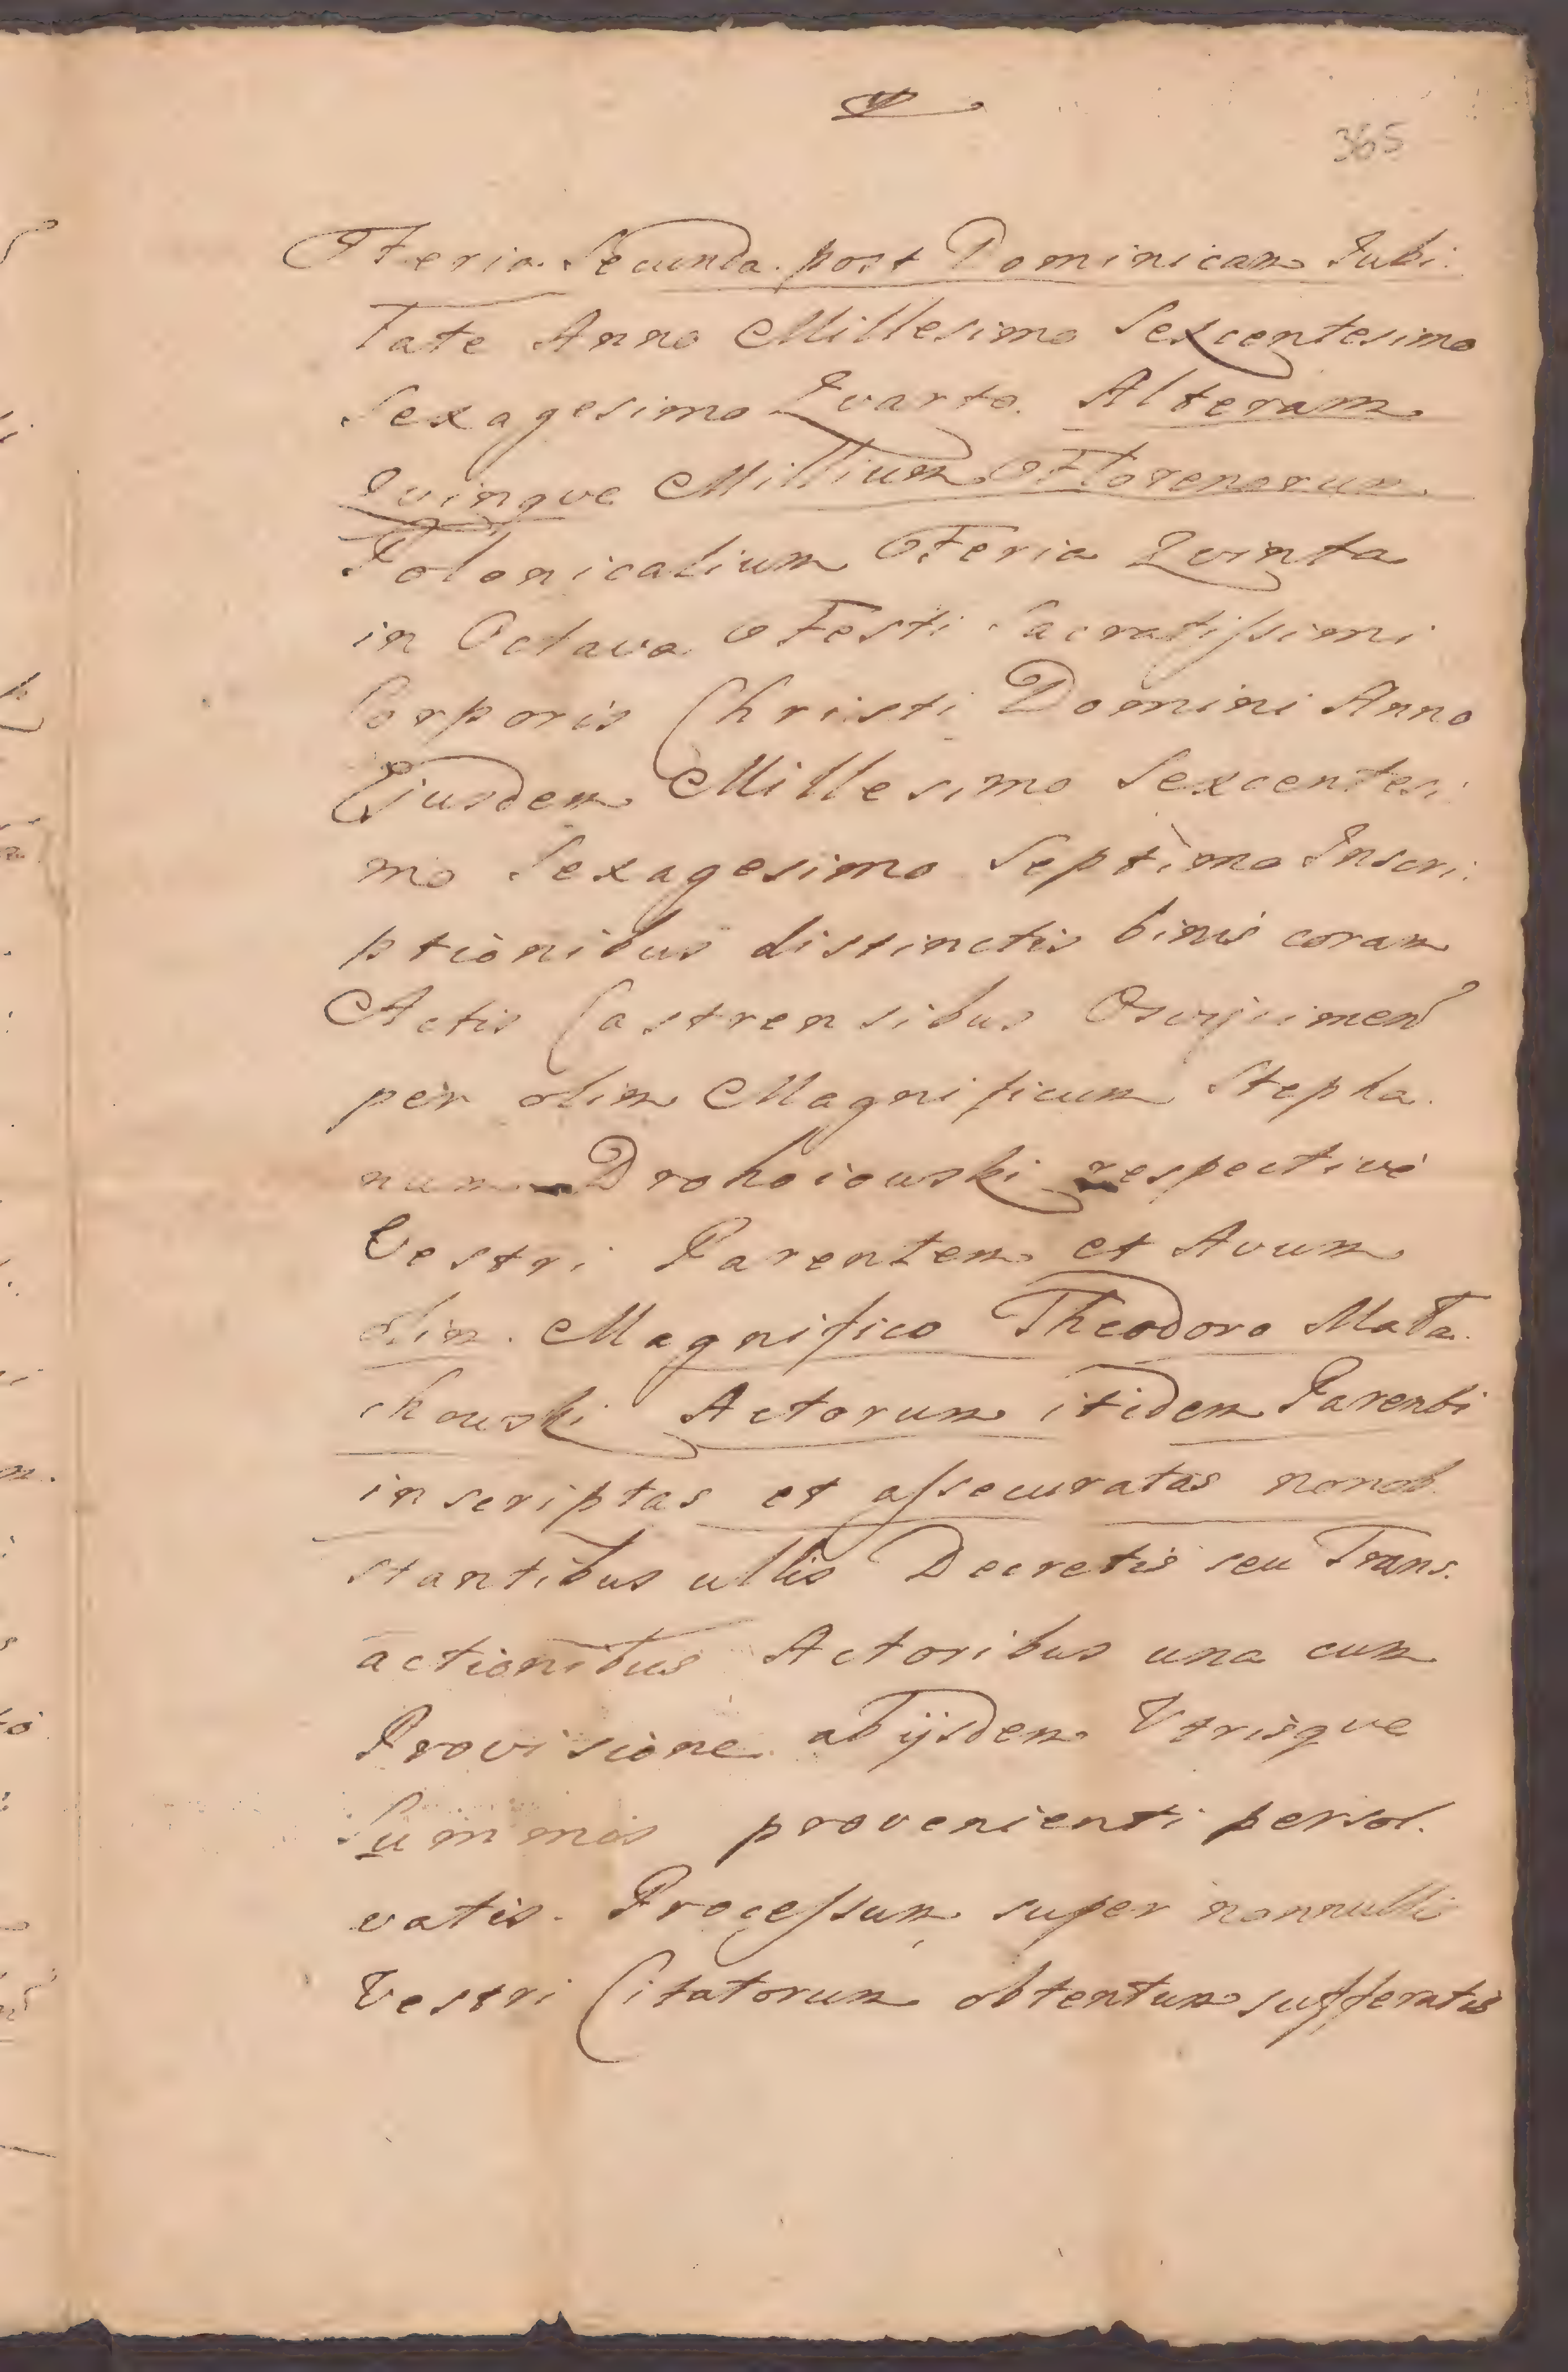 365
Feria Secunda post Dominicam Jubi:
late Anno Millesimo Sexcentesimo
Sexagesimo Qvarto. Alteram
Qvinqve Millium Florenorum
Polonicalium Feria Qvinta
in Octava Festi Sacratissimi
Corporis Christi Domini Anno
Ejusdem Millesimo Sexcentesi:
mo Sexagesimo Septimo Inscri:
ptionibus distinctis binis coram
Actis Castrensibus
per olim Magnificum Stepha.
num Drohoiowski respective
Vestri Parentem et Avum
olim Magnifico Theodoro Mała.
chowski Actorum itidem Parenti
inscriptas et assecuratas nonob
stantibus ullis Decretis seu Trans.
actionibus Actoribus una cum
Provisione ab ijsdem Vtrisqve
Summis provenienti persol.
vatis. Processum super nonnulli
Vestri Citatorum obtentum sufferatis